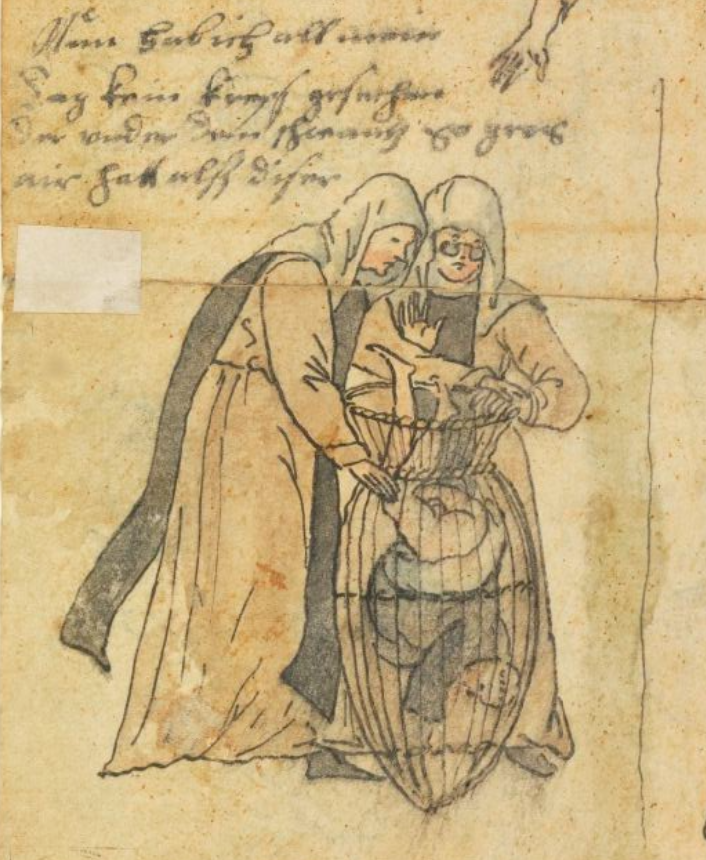 Nun hab ich all mein
Tag kein kreps gesechen
Der under dem schwantz so gros
air hatt alls diser